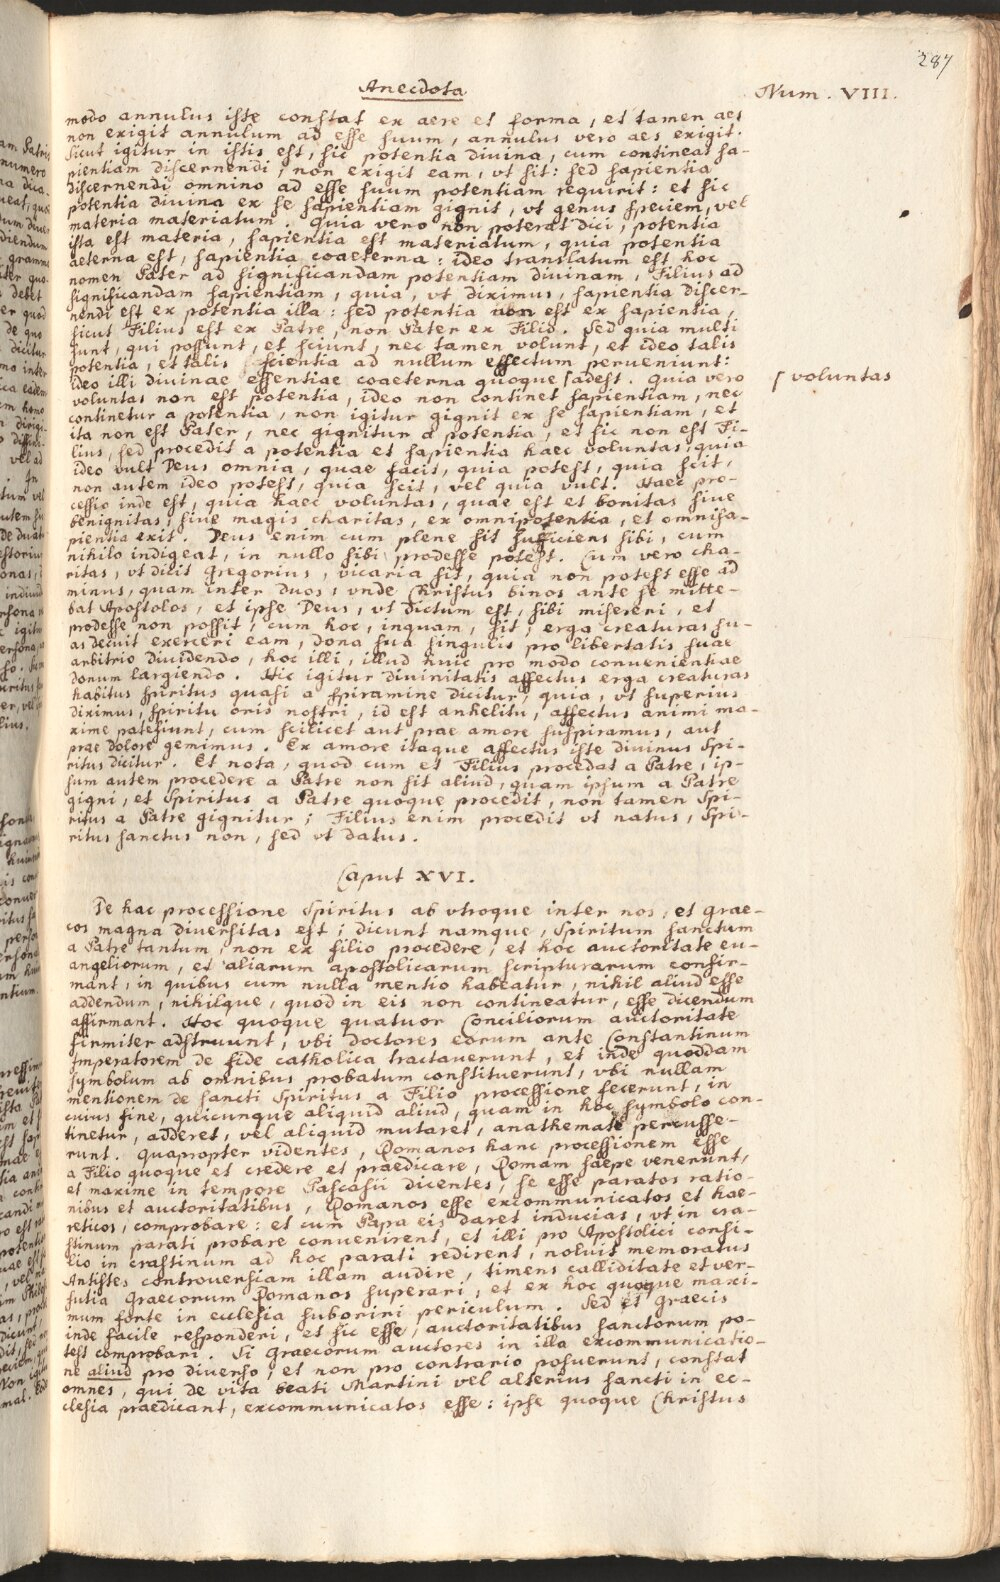 287
Anecdota
Num. VIII.
modo annulus iste constat ex aere et forma, et tamen aes
non exigit annulum ad esse suum, annulus vero aes exigit.
Sicut igitur in istis est, sic potentia divina, cum contineat sa-
pientiam discernendi, non exigit eam, vt sit: sed sapientia
discernendi omnino ad esse suum potentiam requirit: et sic
potentia divina ex se sapientiam gignit, vt genus speciem, vel
materia materiatum. Quia vero non poterat dici, potentia
ista est materia, sapientia est materiatum, quia potentia
aeterna est, sapientia coaeterna: ideo translatum est hoc
nomen Pater ad significandam potentiam divinam, Filius ad
significandam sapientiam, quia, vt diximus, sapientia discer-
nendi est ex potentia illa: sed potentia non est ex sapientia,
sicut Filius est ex Patre, non Pater ex Filio. Sed quia multi
sunt, qui possunt, et sciunt, nec tamen volunt, et ideo talis
potentia, et talis scientia ad nullum effectum perveniunt:
ideo illi divinae essentiae coaeterna quoque ⌠adest. Quia vero
⌠ voluntas
voluntas non est potentia, ideo non continet sapientiam, nec
continetur a potentia, non igitur gignit ex se sapientiam, et
ita non est Pater, nec gignitur a potentia, et sic non est Fi-
lius, sed procedit a potentia et sapientia haec voluntas, quia
ideo vult Deus omnia, quae facit, quia potest, quia scit,
non autem ideo potest, quia scit, vel quia vult. Haec pro-
cessio inde est, quia haec voluntas, quae est et bonitas sive
benignitas, sive magis charitas, ex omnipotentia, et omnisa-
pientia exit. Deus enim cum plene sit sufficiens sibi, cum
nihilo indigeat, in nullo sibi prodesse potest. Cum vero cha-
ritas, vt dicit Gregorius, vicaria sit, quia non potest esse ad
minus, quam inter duos, vnde Christus binos ante se mitte-
bat Apostolos, et ipse Deus, vt dictum est, sibi misereri, et
prodesse non possit, cum hoc, inquam, sit, erga creaturas su-
as decuit exerceri eam, dona sua singulis pro libertatis suae
arbitrio dividendo, hoc illi, illud huic pro modo convenientiae
donum largiendo. Hic igitur divinitatis affectus erga creaturas
habitus Spiritus quasi a spiramine dicitur, quia, vt superius
diximus, spiritu oris nostri, id est anhelitu, affectus animi ma-
xime patefiunt, cum scilicet aut prae amore suspiramus, aut
prae dolore gemimus. Ex amore itaque affectus iste divinus Spi-
ritus dicitur. Et nota, quod cum et Filius procedat a Patre, ip-
sum autem procedere a Patre non sit aliud, quam ipsum a Patre
gigni, et Spiritus a Patre quoque procedit, non tamen Spi-
ritus a Patre gignitur; Filius enim procedit vt natus, Spi-
ritus sanctus non, sed vt datus.
Caput XVI.
De hac processione Spiritus ab vtroque inter nos, et Grae-
cos magna diversitas est; dicunt namque, Spiritum sanctum
a Patre tantum, non ex filio procedere, et hoc auctoritate eu-
angeliorum, et aliarum apostolicarum scripturarum confir-
mant, in quibus cum nulla mentio habeatur, nihil aliud esse
addendum, nihilque, quod in eis non contineatur, esse dicendum
affirmant. Hoc quoque quatuor Conciliorum auctoritate
firmiter adstruunt, vbi doctores eorum ante Constantinum
Imperatorem de fide catholica tractaverunt, et inde quoddam
symbolum ab omnibus probatum constituerunt, vbi nullam
mentionem de sancti Spiritus a Filio processione fecerunt, in
cuius fine, quicunque aliquid aliud, quam in hoc symbolo con-
tinetur, adderet, vel aliquid mutaret, anathemate percusse-
runt. Quapropter videntes, Romanos hanc processionem esse
a Filio quoque et credere et praedicare, Romam saepe venerunt,
et maxime in tempore Pascasii dicentes, se esse paratos ratio-
nibus et auctoritatibus, Romanos esse excommunicatos et hae-
reticos, comprobare: et cum Papa eis daret inducias, vt in cra-
stinum parati probare convenirent, et illi pro Apostolici consi-
lio in crastinum ad hoc parati redirent, noluit memoratus
Antistes controversiam illam audire, timens calliditate et ver-
sutia Graecorum Romanos superari, et ex hoc quoque maxi-
mum forte in ecclesia suboriri periculum. Sed et Graecis
inde facile responderi, et sic esse, auctoritatibus sanctorum po-
test comprobari. Si Graecorum auctores in illa excommunicatio-
ne aliud pro diverso, et non pro contrario posuerunt, constat
omnes, qui de vita beati Martini vel alterius sancti in ec-
clesia praedicant, excommunicatos esse: ipse quoque Christus